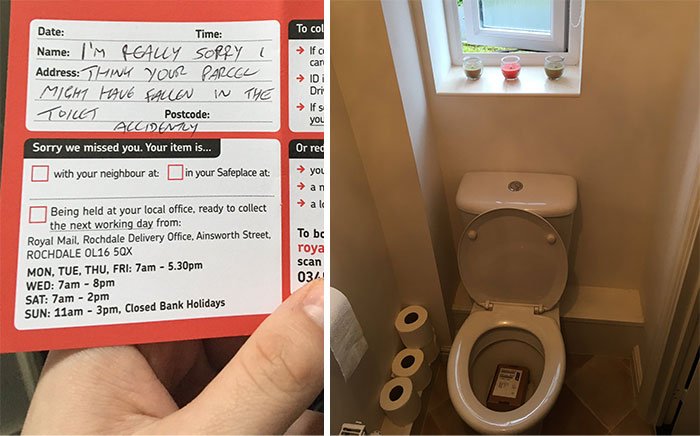 Date: Time:
Name: I'M REALLY SORRY I
Address: THINK YOUR PARCEL
MIGHT HAVE FALLEN IN THE
TOILET Postcode:
ACCIDENTLY
Sorry we missed you. Your item is...
with your neighbour at: in your Safeplace at:
Being held at your local office, ready to collect
the next working day from:
Royal Mail, Rochdale Delivery Office, Ainsworth Street,
ROCHDALE OL16 5QX
MON, TUE, THU, FRI: 7am - 5.30pm
WED: 7am - 8pm
SAT: 7am - 2pm
SUN: 11am - 3pm, Closed Bank Holidays
To col
→ If c
car
→ ID i
Dri
→ If s
you
Or rec
→ you
→ a n
→ a lo
To bo
roya
scan
034